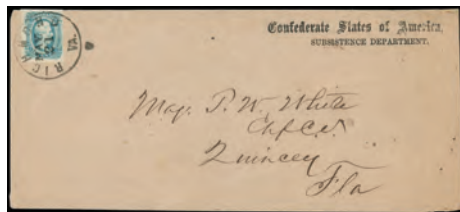 RICHMOND
MAY
VA.
Confederate States of America,
SUBSISTENCE DEPARTMENT.
Maj. P. W. White
Quincey
Fla